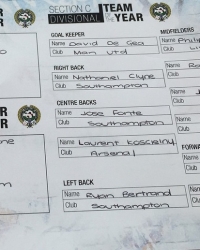 SECTION C
DIVISIONAL
TEAM
OF THE
YEAR
GOAL KEEPER
Name David De Gea
Club Man Utd
RIGHT BACK
Name Nathaniel Clyne
Club Southampton
CENTRE BACKS
Name Jose Fonte
Club Southampton
Name Laurent Koscielny
Club Arsenal
LEFT BACK
Name Ryan Bertrand
Club Southampton
MIDFIELDERS
Name
Club
Name
Club
Name
Club
Name
Club
Name
Club